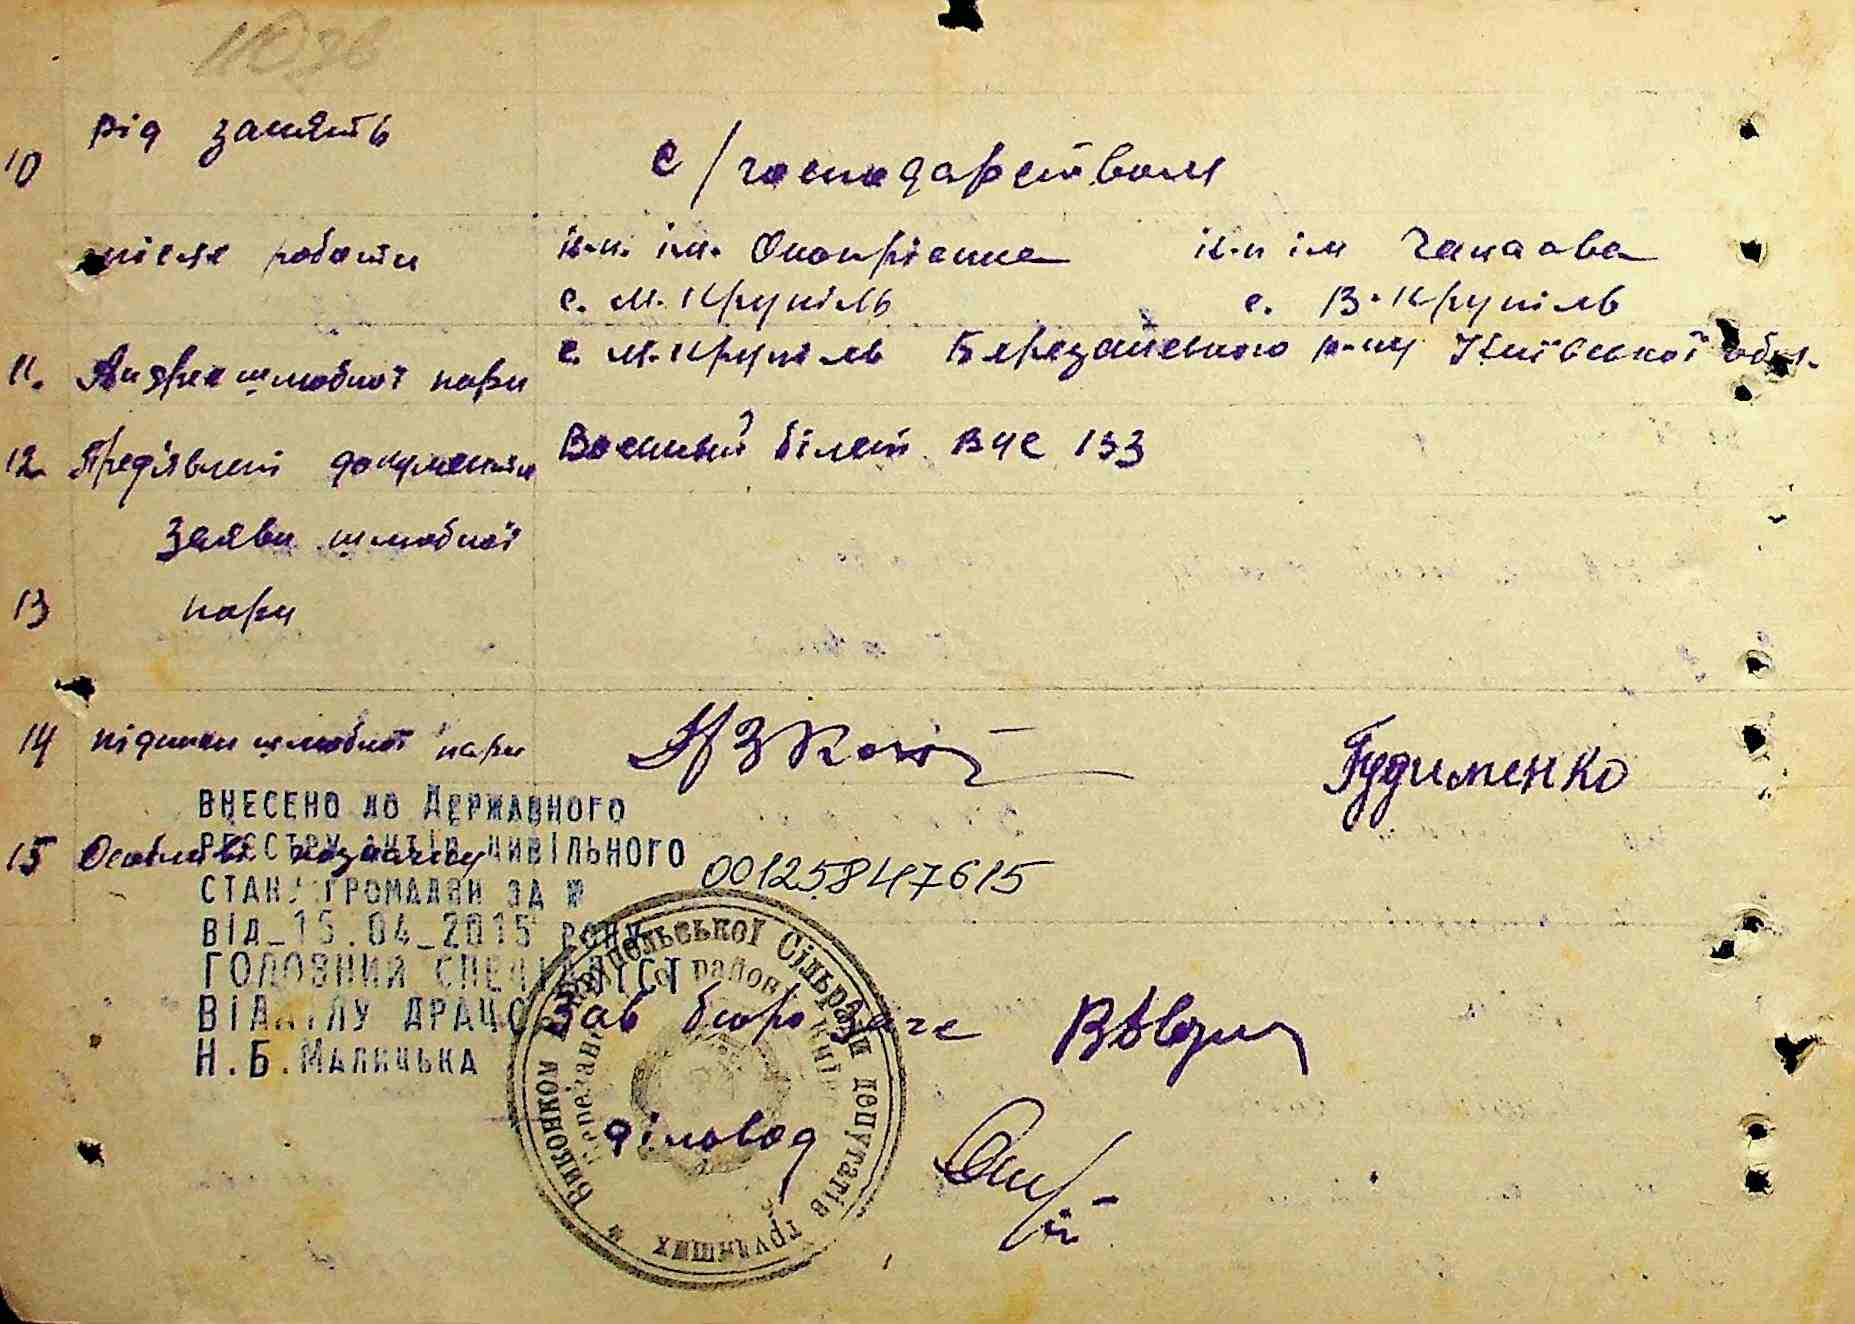 рід занять
10
с/господарством
місце роботи к.п. ім. Онопрієнка к.п ім Чапаєва
с. М. Крупіль с. В. Крупіль
11. Андрес шлюбної пари с. М. Крупіль Березанського р-ну Київської обл.
12. Предявлені документи Воєнний білет ВЧЄ 133
Заяви шлюбної
13 пари
14 підписи шлюбної пари Гудименко
ВНЕСЕНО ДО ДЕРЖАВНОГО
15 Особливі
РЕЄСТРУ АКТІВ ЦИВІЛЬНОГО 00125847615
СТАНУ ГРОМАДЯН ЗА №
ВІД 15.04 2015 РОКУ
ГОЛОВНИЙ СПЕЦІАЛІСТ
ВІДДІЛУ ДРАЦС Зав бюро загс
Н.Б.МАЛИЦЬКА
діловод
Виконком Крупольської Сільради депутатів трудящих
Березанського району